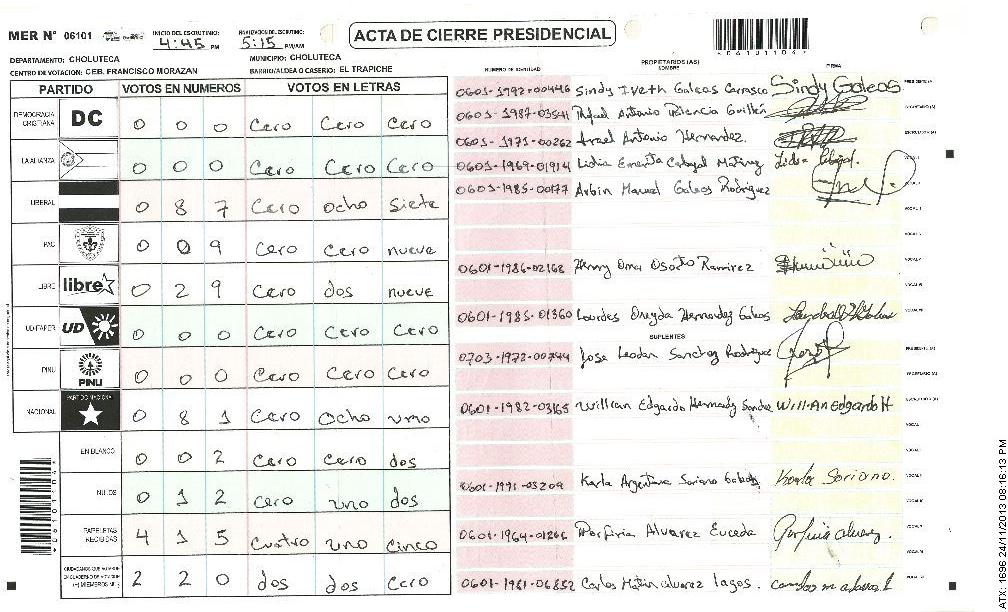 MER N° 06101 INICIO DEL ESCRUTINIO: 4:45 PM FINALIZACION DEL ESCRUTINIO: 5:15 PM/AM
ACTA DE CIERRE PRESIDENCIAL
DEPARTAMENTO: CHOLUTECA MUNICIPIO: CHOLUTECA
CENTRO DE VOTACION: CEB. FRANCISCO MORAZAN BARRIO/ALDEA O CASERIO: EL TRAPICHE
PARTIDO VOTOS EN NUMEROS VOTOS EN LETRAS
DEMOCRACIA CRISTIANA DC 0 0 0 Cero Cero Cero
LA ALIANZA 0 0 0 Cero Cero Cero
LIBERAL 0 8 7 Cero Ocho Siete
PAC 0 0 9 Cero Cero nueve
LIBRE libre 0 2 9 Cero dos nueve
UD/FAPER UD 0 0 0 Cero Cero Cero
PINU PINU 0 0 0 Cero Cero Cero
NACIONAL PARTIDO NACIONAL 0 8 1 Cero Ocho uno
EN BLANCO 0 0 2 Cero Cero dos
NULOS 0 1 2 Cero uno dos
PAPELETAS RECIBIDAS 4 1 5 Cuatro uno Cinco
2 2 0 dos dos Cero
NUMERO DE IDENTIDAD PROPIETARIOS (AS) NOMBRE FIRMA
0601-1992-00446 Sindy Iveth Galeas Carrasco Sindy Galeas
0601-1987-03541 Rafael Antonio Palencia Guillen
0605-1971-00262 Antonio Hernandez
0601-1969-01914 Lidia
0603-1985-00177 Arbin Manuel Galeas Rodriguez
0601-1986-02168 Henry Omar Ramirez
0601-1985-01360 Lourdes Hernandez Galeas
SUPLENTES
0703-1972-00744 Jose Sanchez Rodriguez
0601-1982-03165 Edgardo Will-An Edgardo H
0601-1991-03209 Karla Argentina Soriano Karla Soriano.
0601-1964-01266 Porfiria Alvarez Euceda Porfiria alvarez.
0601-1981-06852 Carlos alvarez lagos.
*06101104*
ATX: 1696 24/11/2013 08:16:13 PM